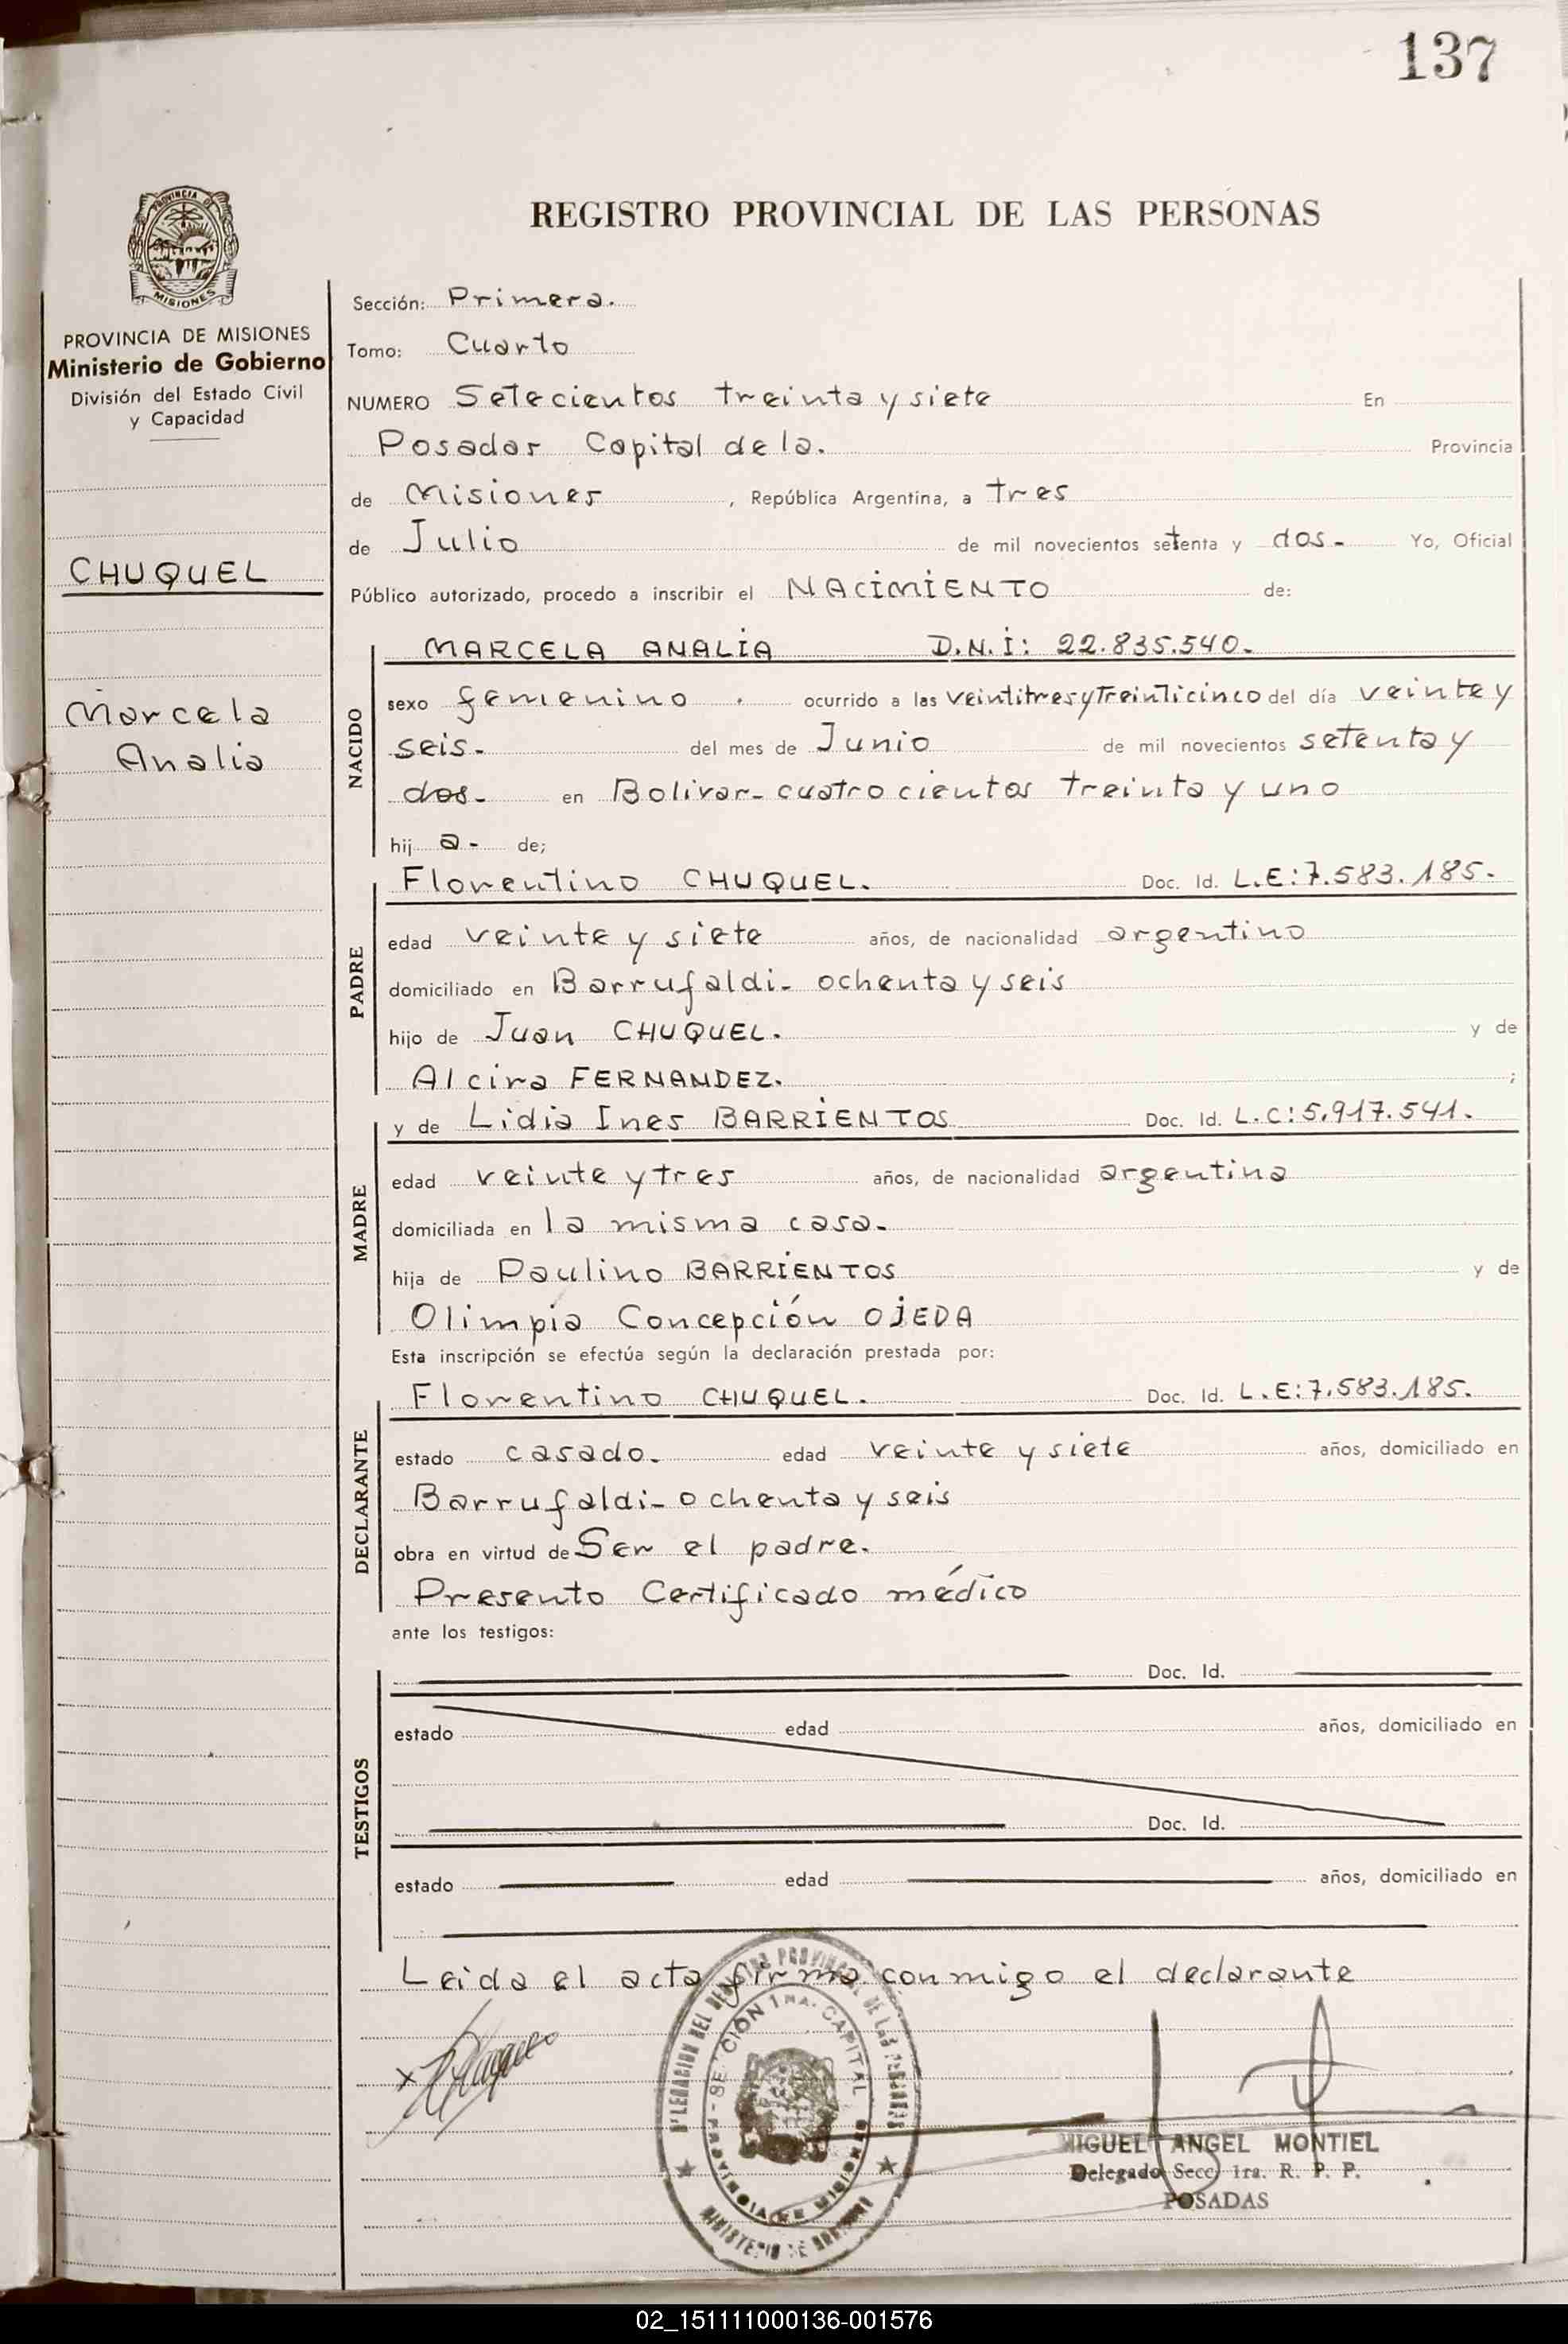 137
PROVINCIA DE
MISIONES
PROVINCIA DE MISIONES
Ministerio de Gobierno
División del Estado Civil
y Capacidad
CHUQUEL
Marcela
Analia
REGISTRO PROVINCIAL DE LAS PERSONAS
Sección: Primera.
Tomo: Cuarto
NUMERO Setecientos treinta y siete En
Posadas Capital de la. Provincia
de Misiones, República Argentina, a tres
de Julio de mil novecientos setenta y dos- Yo, Oficial
Público autorizado, procedo a inscribir el NACIMIENTO de:
NACIDO
MARCELA ANALIA D.N.I: 22.835.540.-
sexo femenino. ocurrido a las veintitres y Treinticinco del día veinte y
seis- del mes de Junio de mil novecientos setenta y
dos- en Bolivar- cuatrocientos treinta y uno
hij a- de;
PADRE
Florentino CHUQUEL. Doc. Id. L.E:7.583.185.-
edad veinte y siete años, de nacionalidad argentino
domiciliado en Barrufaldi- ochenta y seis
hijo de Juan CHUQUEL. y de
Alcira FERNANDEZ. ;
MADRE
y de Lidia Ines BARRIENTOS Doc. Id. L.C:5.917.541.
edad veinte y tres años, de nacionalidad argentina
domiciliada en la misma casa-
hija de Paulino BARRIENTOS y de
Olimpia Concepción OJEDA
Esta inscripción se efectúa según la declaración prestada por:
DECLARANTE
Florentino CHUQUEL. Doc. Id. L.E:7.583.185.
estado casado. edad veinte y siete años, domiciliado en
Barrufaldi- ochenta y seis
obra en virtud de Ser el padre.
Presento Certificado médico
ante los testigos:
TESTIGOS
Doc. Id.
estado edad años, domiciliado en
Doc. Id.
estado edad años, domiciliado en
Leida el acta firma conmigo el declarante
DELEGACION DEL REGISTRO PROVINCIAL DE LAS PERSONAS
SECCION 1RA. CAPITAL
PROVINCIA DE MISIONES
MINISTERIO DE GOBIERNO
MIGUEL ANGEL MONTIEL
Delegado Secc. 1ra. R. P. P.
POSADAS
02_151111000136-001576